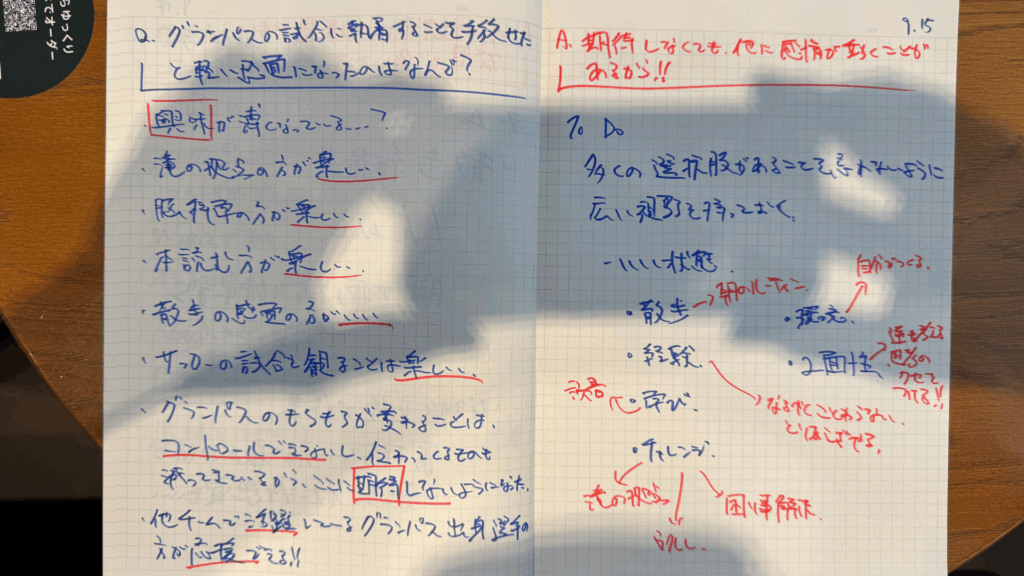 ゆっくり
でオーダー
Q. グランパスの試合に執着することを手放せた
と軽い感覚になったのはなんで?
・興味が薄くなっている…?
・滝の拠点の方が楽しい…
・脳科学の方が楽しい…
・本読む方が楽しい…
・散歩の感覚の方がいい…
・サッカーの試合を観ることは楽しい…
・グランパスのもろもろが変わることは、
コントロールできないし、伝わってくるものも
減ってきているから、ここに期待しないようになった。
・他チームで活躍しているグランパス出身選手の
方が応援できる!!
9.15
A. 期待しなくても、他に感情が動くことが
あるから!!
To Do
多くの選択肢があることを忘れないように
広い視野を持っておく。
→いい状態
・散歩 → 朝のルーティン
・経験
なるべくことわらない
・学び
・チャレンジ
滝の拠点
困り事解決
・環境
自分でつくる
・2面性
逆も考える
クセを
つける!!